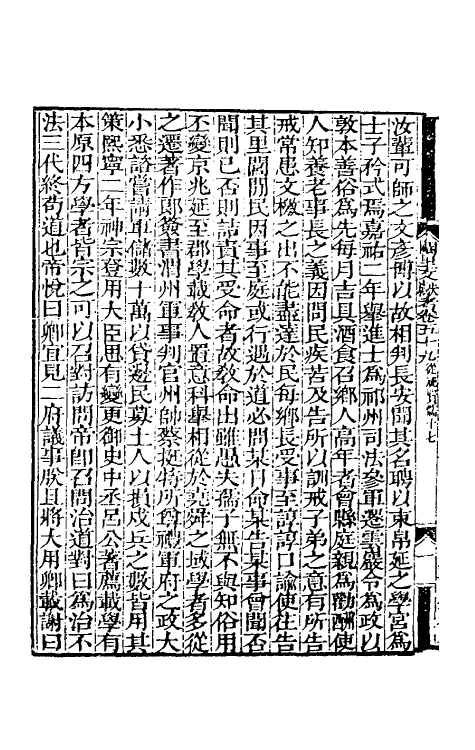 汝輩可師之文彥博以故相判長安聞其名聘以束帛延之學宮為
士子矜式焉嘉祐二年舉進士為祁州司法參軍遷雲巖令為政以
敦本善俗為先每月吉具酒食召鄉人高年者會縣庭親為勸酬使
人知養老事長之義因問民疾苦及告所以訓戒子弟之意有所告
戒常患文檄之出不能盡達於民每鄉長受事至諄諄口諭使往告
其里閭閒民因事至庭或行遇於道必問某日命某告某事會聞否
聞則已否則詰責其受命者故教命出雖愚夫孺子無不與知俗用
丕變京兆延至郡學載教人置意科舉相從於堯舜之域學者多從
之遷著作郎簽書渭州軍事判官州帥蔡挺特所尊禮軍府之政大
小悉諮嘗請軍儲數十萬以貸邊民募土人以損戍兵之數皆用其
策熙寧二年神宗登用大臣思有變更御史中丞呂公著薦載學有
本原四方學者皆宗之可以召對訪問帝即召問治道對曰為治不
法三代終苟道也帝悅曰卿宜見二府議事朕且將大用卿載謝曰